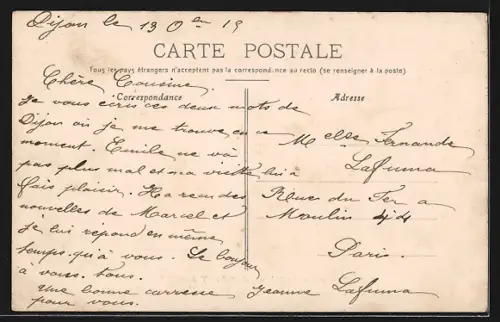 Dijon le 13 8bre 19
CARTE POSTALE
Tous les pays étrangers n'acceptent pas la correspondance au recto (se renseigner à la poste)
Correspondance
Chère Cousine.
Je vous écris ces deux mots de
Dijon où je me trouve en ce
moment. Emile ne va
pas plus mal et ma visite lui à
fais plaisir. Il a reçu des
nouvelles de Marcel et
je lui répond en même
temps qu'à vous. Le bonjour
à vous tous.
Une bonne caresse Jeanne Lafuma
pour vous.
Adresse
Melle Fernande
Lafuma
Rue du Fer a
Moulin
Paris.